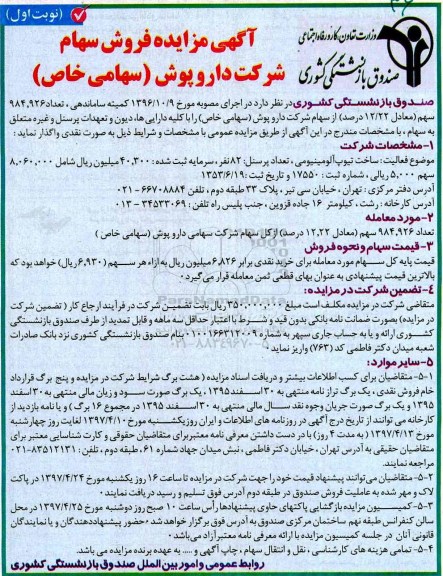 (نوبت اول)
وزارت تعاون، کار و رفاه اجتماعی
صندوق بازنشستگی کشوری
آگهی مزایده فروش سهام
شرکت دارو پوش (سهامی خاص)
صندوق بازنشستگی کشوری در نظر دارد در اجرای مصوبه مورخ ۱۳۹۶/۱۰/۹ کمیته ساماندهی، تعداد ۹۸۴,۹۲۶
سهم (معادل ۱۲/۲۲ درصد) از سهام شرکت دارو پوش (سهامی خاص) را با کلیه دارایی ها، دیون و تعهدات پرسنل و غیره متعلق
به سهام، با مشخصات مندرج در این آگهی از طریق مزایده عمومی با مشخصات و شرایط ذیل به صورت نقدی واگذار نماید:
۱-مشخصات شرکت
موضوع فعالیت: ساخت تیوپ آلومینیومی، تعداد پرسنل: ۸۲ نفر، سرمایه ثبت شده: ۴۰,۳۰۰ میلیون ریال شامل ۸,۰۶۰,۰۰۰
سهم ۵,۰۰۰ ریالی، شماره ثبت: ۱۷۵۵۰ و تاریخ ثبت: ۱۳۵۳/۶/۱۹
آدرس دفتر مرکزی: تهران، خیابان سی تیر، پلاک ۳۳ طبقه دوم، تلفن: ۶۶۷۰۸۸۸۴ - ۰۲۱
آدرس کارخانه: رشت، کیلومتر ۱۶ جاده قزوین، جنب پلیس راه تلفن: ۳۴۵۳۳۰۶۹ - ۰۱۳
۲-مورد معامله
تعداد ۹۸۴,۹۲۶ سهم (معادل ۱۲,۲۲ درصد) از کل سهام شرکت سهامی دارو پوش (سهامی خاص)
۳-قیمت سهام و نحوه فروش
قیمت پایه کل سهام مورد معامله برای خرید نقدی برابر ۶,۸۲۶ میلیون ریال به ازاء هر سهم (۶,۹۳۰ ریال) خواهد بود که
بالاترین قیمت پیشنهادی به عنوان بهای قطعی ثمن معامله قرار می گیرد.
۴-تضمین شرکت در مزایده:
متقاضی شرکت در مزایده مکلف است مبلغ ۳۵۰,۰۰۰,۰۰۰ ریال بابت تضمین شرکت در فرآیند ارجاع کار (تضمین شرکت
در مزایده) بصورت ضمانت نامه بانکی بدون قید و شرط با اعتبار حداقل سه ماهه و قابل تمدید از طرف صندوق بازنشستگی
کشوری ارائه و یا به حساب جاری سپهر به شماره ۰۱۰۰۱۶۶۳۱۲۰۰۹ بنام صندوق بازنشستگی کشوری نزد بانک صادرات
شعبه میدان دکتر فاطمی کد (۷۶۳) واریز نماید.
۵-سایر موارد:
۵-۱- متقاضیان برای کسب اطلاعات بیشتر و دریافت اسناد مزایده (هشت برگ شرایط شرکت در مزایده و پنج برگ قرارداد
خام فروش نقدی، یک برگ تراز نامه منتهی به ۳۰ اسفند ۱۳۹۵، یک برگ صورت سود و زیان مالی منتهی به ۳۰ اسفند
۱۳۹۵ و یک برگ صورت جریان وجوه نقد سال مالی منتهی به ۳۰ اسفند ۱۳۹۵ در مجموع ۱۶ برگ) و یا نامه بازدید از
کارخانه می توانند از تاریخ درج آگهی در روزنامه های اطلاعات و ایران روز یکشنبه مورخ ۱۳۹۷/۴/۱۰ لغایت روز چهارشنبه
مورخ ۱۳۹۷/۴/۱۳ (به مدت ۴ روز) با در دست داشتن معرفی نامه معتبر برای متقاضیان حقوقی و کارت شناسایی معتبر برای
متقاضیان حقیقی به آدرس تهران، خیابان دکتر فاطمی، نبش میدان جهاد شماره ۶۱، طبقه دوم، تلفن: ۸۳۵۱۲۱۳۱-۰۲۱
مراجعه نمایند.
۵-۲- متقاضیان می توانند پیشنهاد قیمت خود را جهت شرکت در مزایده تا ساعت ۱۶ روز یکشنبه مورخ ۱۳۹۷/۴/۲۴ در پاکت
لاک و مهر شده به عاملیت فروش صندوق در طبقه دوم آدرس فوق تسلیم و رسید دریافت نمایند.
۵-۳- کمیسیون مزایده بازگشایی پاکتهای حاوی پیشنهادها، رأس ساعت ۱۰ صبح روز دوشنبه مورخ ۱۳۹۷/۴/۲۵ در محل
سالن کنفرانس طبقه نهم ساختمان مرکزی صندوق به آدرس فوق برگزار خواهد شد، حضور پیشنهاد دهندگان و یا نمایندگان
قانونی آنان در جلسه کمیسیون مزایده با ارائه معرفی نامه معتبر آزاد می باشد.
۵-۴- تمامی هزینه های کارشناسی، نقل و انتقال سهام، چاپ آگهی و .... به عهده برنده مزایده می باشد.
روابط عمومی و امور بین الملل صندوق بازنشستگی کشوری